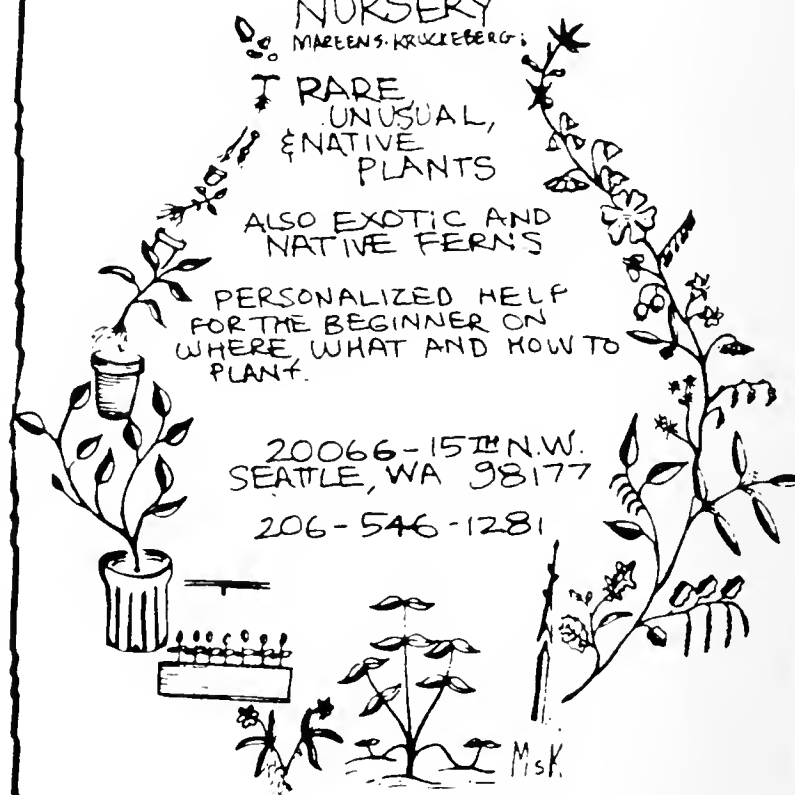 NURSERY
MAREEN S. KRUCKEBERG;
RARE,
UNUSUAL,
& NATIVE
PLANTS
ALSO EXOTIC AND
NATIVE FERNS
PERSONALIZED HELP
FOR THE BEGINNER ON
WHERE, WHAT AND HOW TO
PLANT.
20066-15TH N.W.
SEATTLE, WA 98177
206-546-1281
MsK